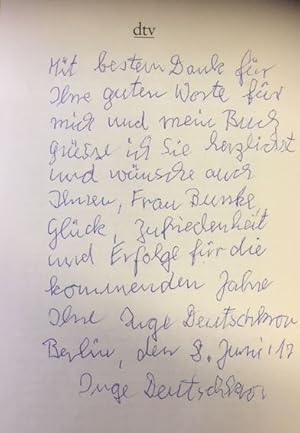 dtv
Mit bestem Dank für
Ihre guten Worte für
mich und mein Buch
grüsse ich Sie herzlichst
und wünsche auch
Ihnen, Frau Bunke,
Glück, Zufriedenheit
und Erfolge für die
kommenden Jahre
Ihre Inge Deutschkron
Berlin, den 8. Juni '17
Inge Deutschkron